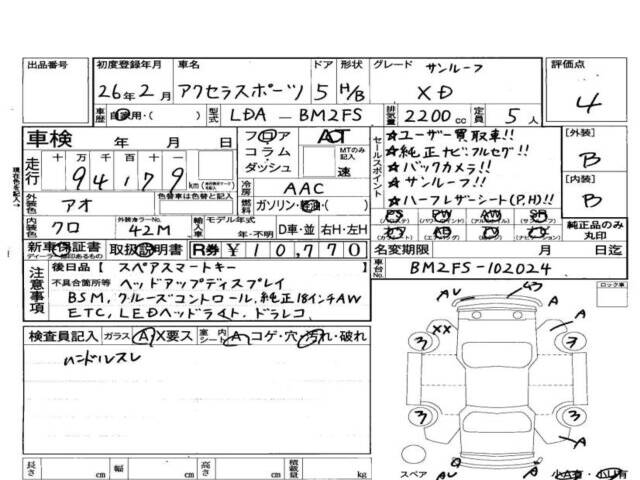 出品番号 初度登録年月 車名 ドア 形状 グレード サンルーフ 評価点
26年2月 アクセラスポーツ 5 H/B XD 4
車歴 自家用・( ) 型式 LDA-BM2FS 排気量 2200cc 定員 5人
車検 年 月 日 フロア AT セールスポイント ★ユーザー買取車!! [外装]
コラム MTのみ記入 ★純正ナビフルセグ!! B
走行 十 万 千 百 十 一 ダッシュ 速 ★バックカメラ!!
94179 km 冷房 AAC ★サンルーフ!! [内装]
外装色 アオ 色替車は色替と記入 燃料 ガソリン・軽油・( ) ★ハーフレザーシート(P,H)!! B
内装色 クロ 外装カラーNo. 42M 輸入車 モデル年式 年・不明 D車・並 右H・左H PS PW AW SR 純正品のみ丸印
新車保証書 取扱説明書 R券 ¥10,770 名変期限 月 日迄
ディーラー 印のあるもの
注意事項 後日品[ スペアスマートキー ] 車台No. BM2FS-102024
不具合箇所等 ヘッドアップディスプレイ ロック車
BSM,クルーズコントロール,純正18インチAW
ETC,LEDヘッドライト,ドラレコ
検査員記入 ガラス A X要ス 室内 シート A コゲ・穴・汚れ・破れ
ハンドルスレ
AU G3 A
XX
3 3
3 3
A
AU A
スペア
長さ cm 幅 cm 高さ cm 積載量 kg